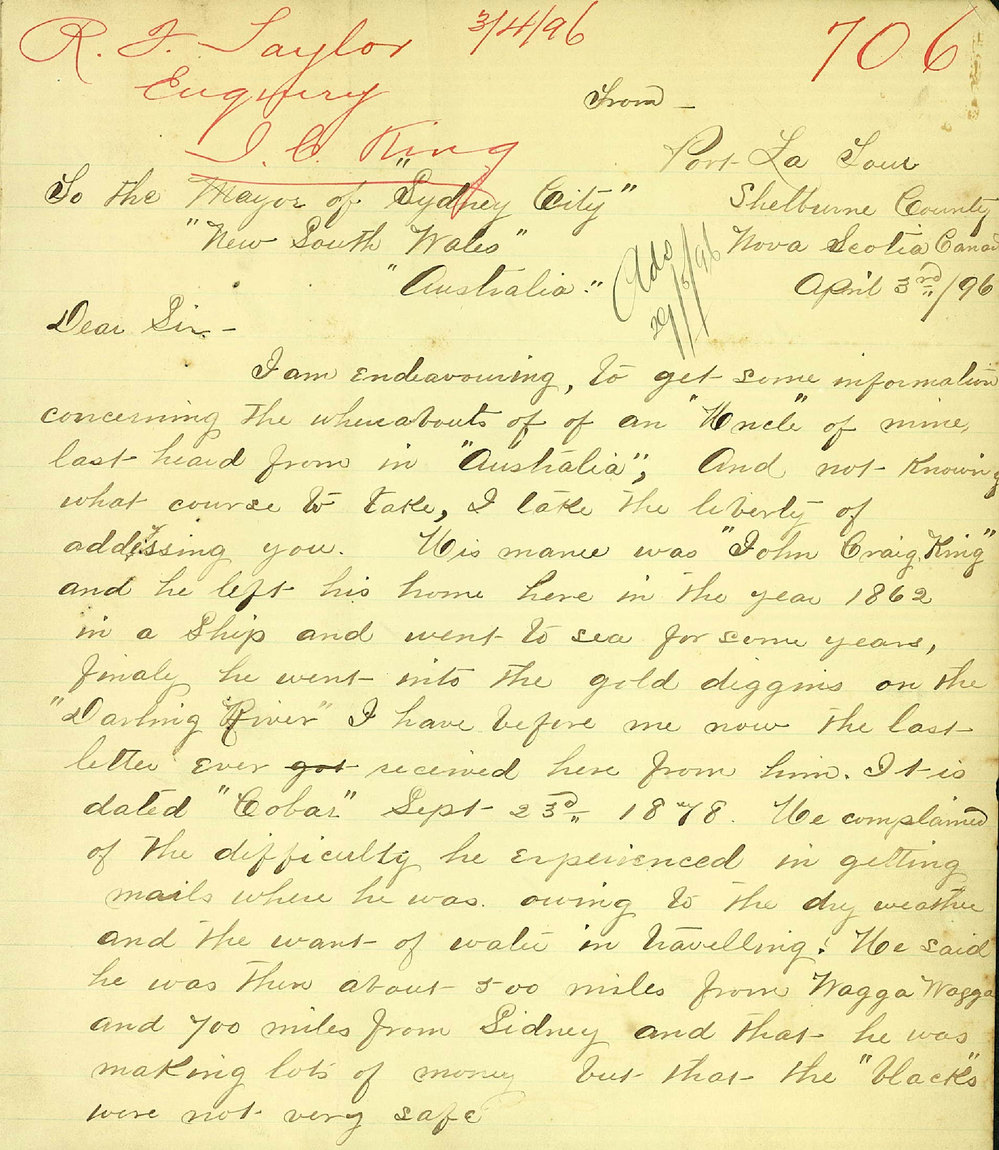 R. F. Taylor 3/4/96 706
Enquiry
J. C. King
From -
Port La Tour
To the Mayor of "Sydney City" Shelburne County
"New South Wales" Nova Scotia Canad
"Australia." April 3rd/96
29/5/96
Dear Sir -
I am endeavouring, to get some information
concerning the whereabouts of of an "Uncle" of mine,
last heard from in "Australia", And not knowing
what course to take, I take the liberty of
addressing you. His name was "John Craig King"
and he left his home here in the year 1862
in a Ship and went to sea for some years,
finaly he went into the gold diggins on the
"Darling River" I have before me now the last
letter ever got received here from him. It is
dated "Cobar" Sept 23rd 1878. He complained
of the difficulty he experienced in getting
mails where he was. owing to the dry weather
and the want of water in travelling. He said
he was then about 500 miles from Wagga Wagga
and 700 miles from Sidney and that he was
making lots of money but that the "blacks"
were not very safe